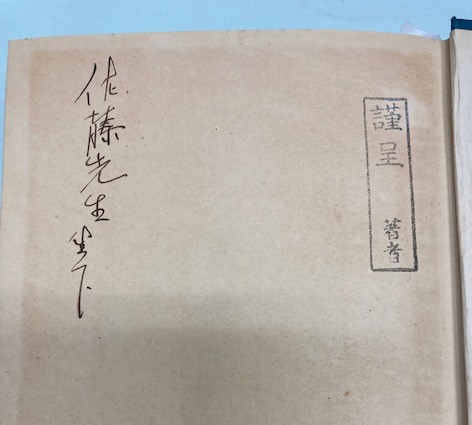 謹呈 著者
佐藤先生坐下